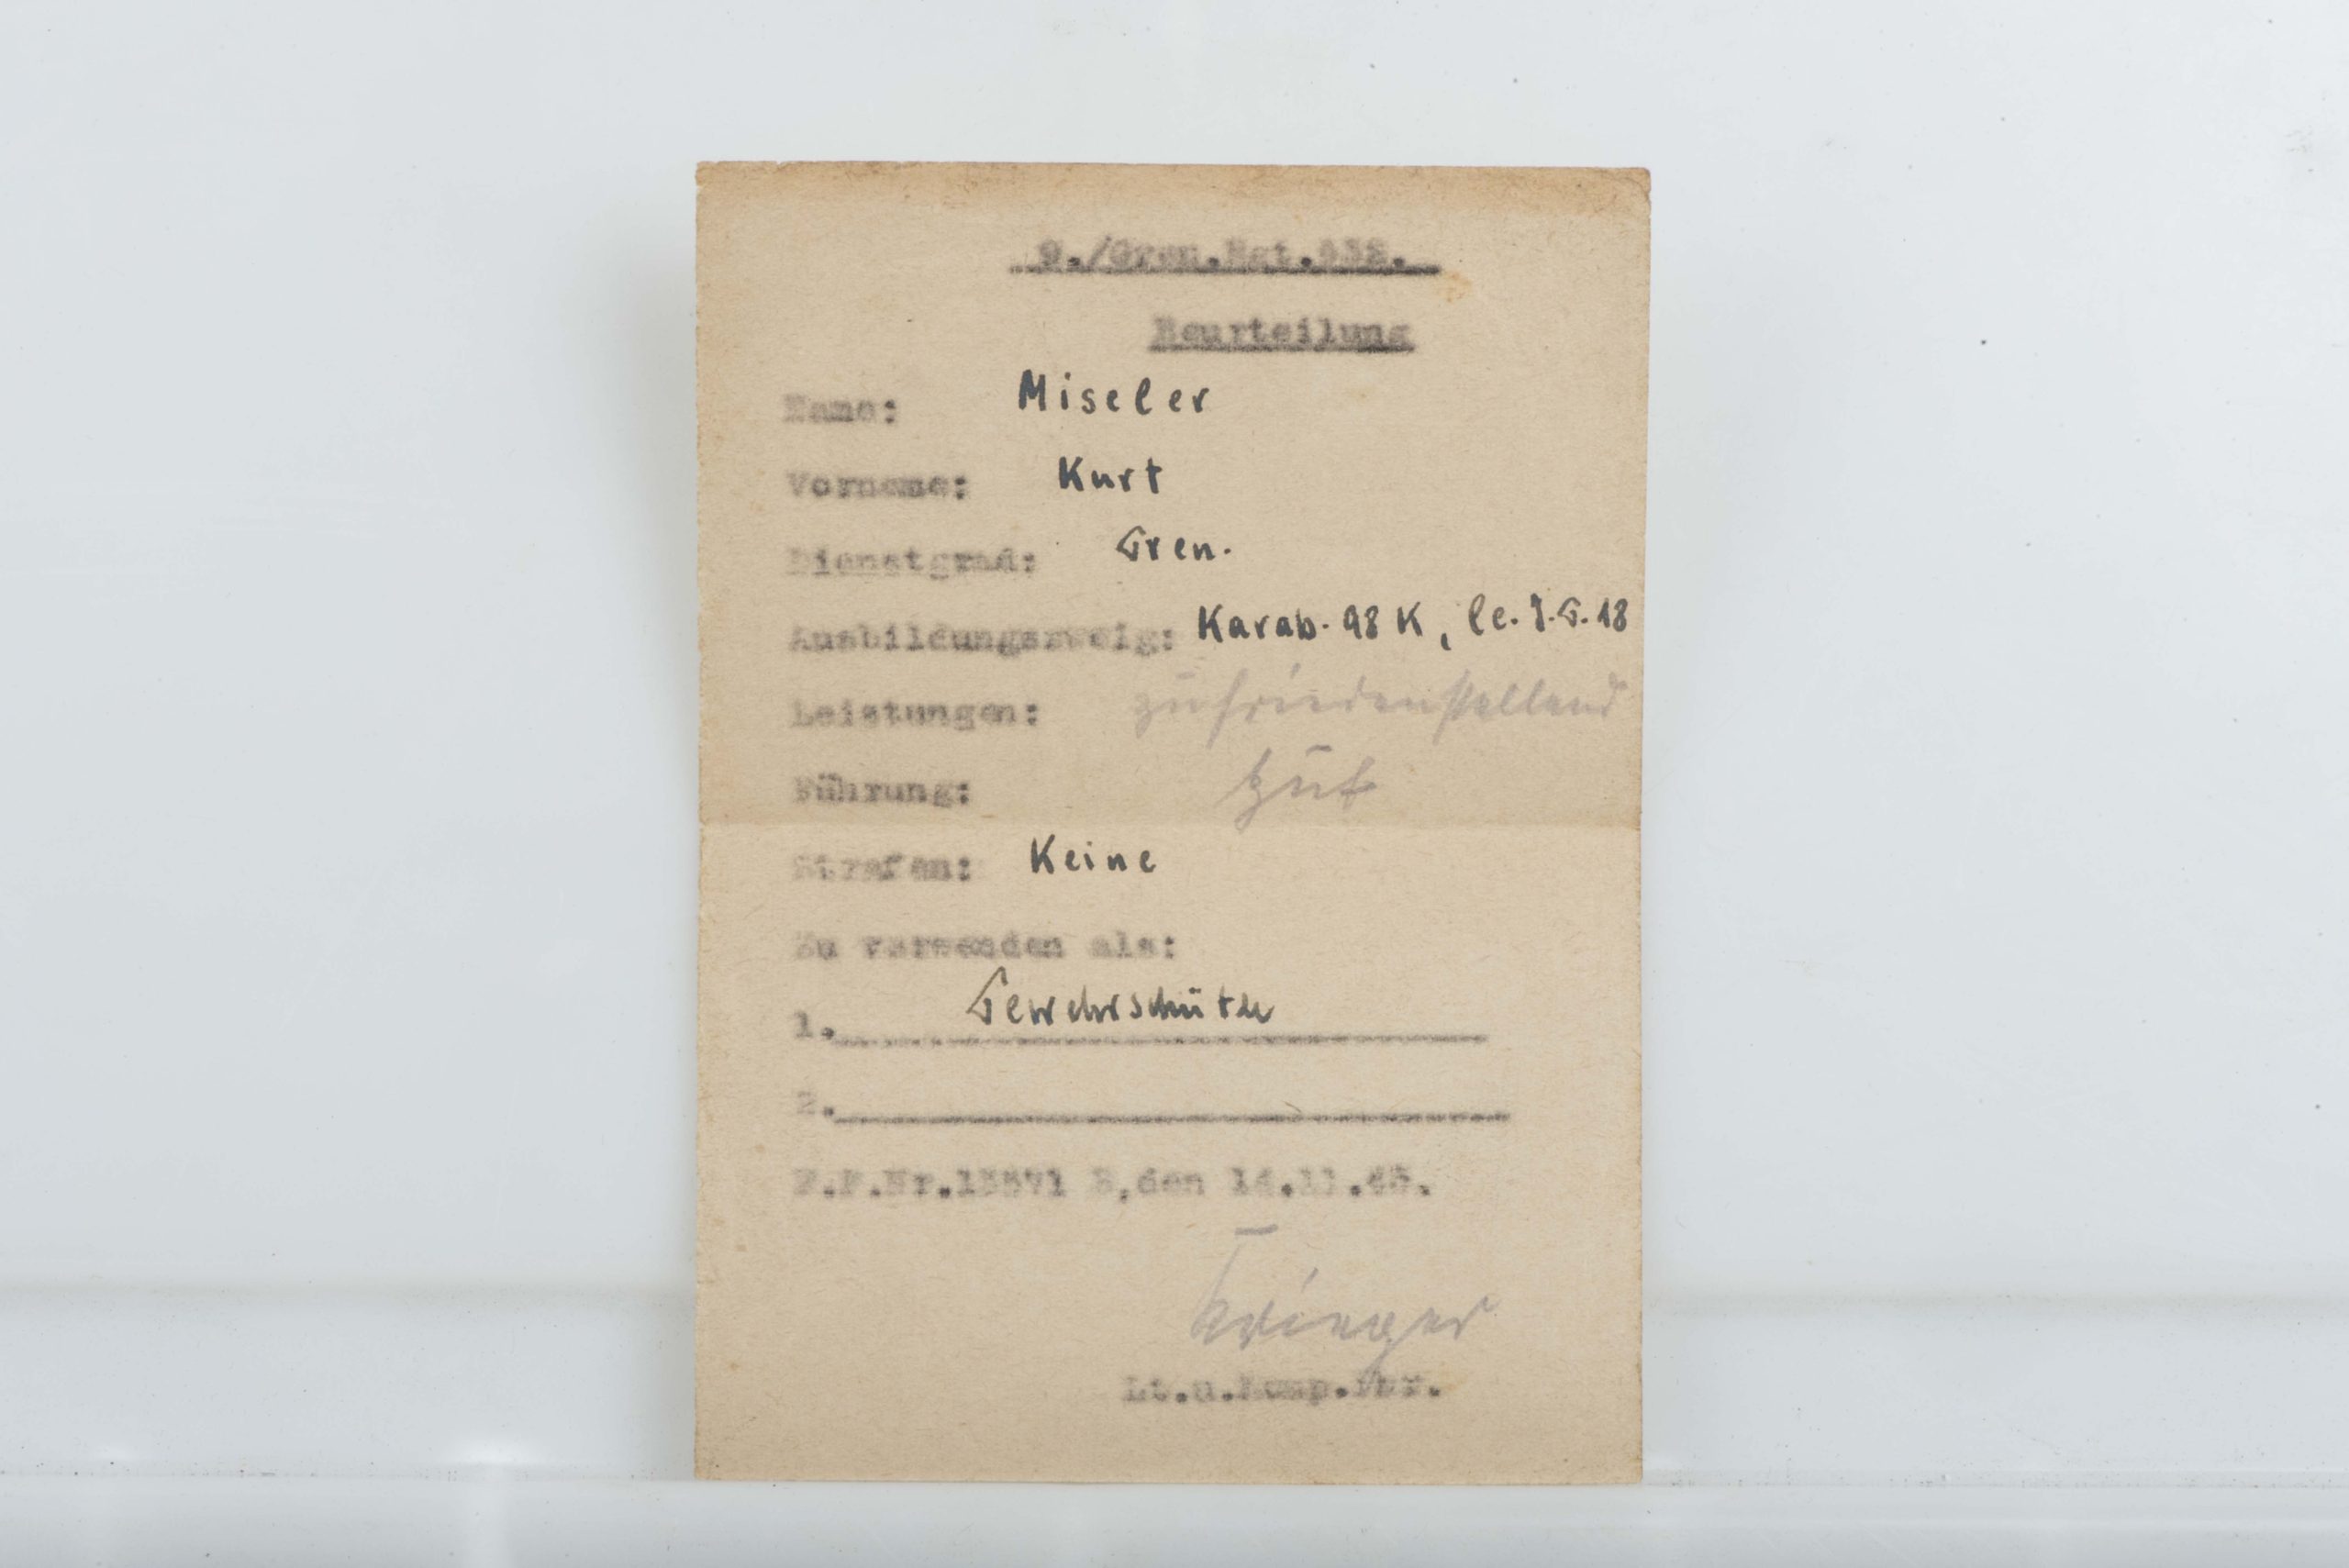 9./Gren.Rgt.532.
Beurteilung
Name: Miseler
Vorname: Kurt
Dienstgrad: Gren.
Ausbildungszweig: Karab. 98 K, le. J.G. 18
Leistungen: zufriedenstellend
Führung: gut
Strafen: Keine
Zu verwenden als:
1. Gewehrschütze
2.
F.P.Nr. den
Krieger
Lt.u.Komp.Fhr.